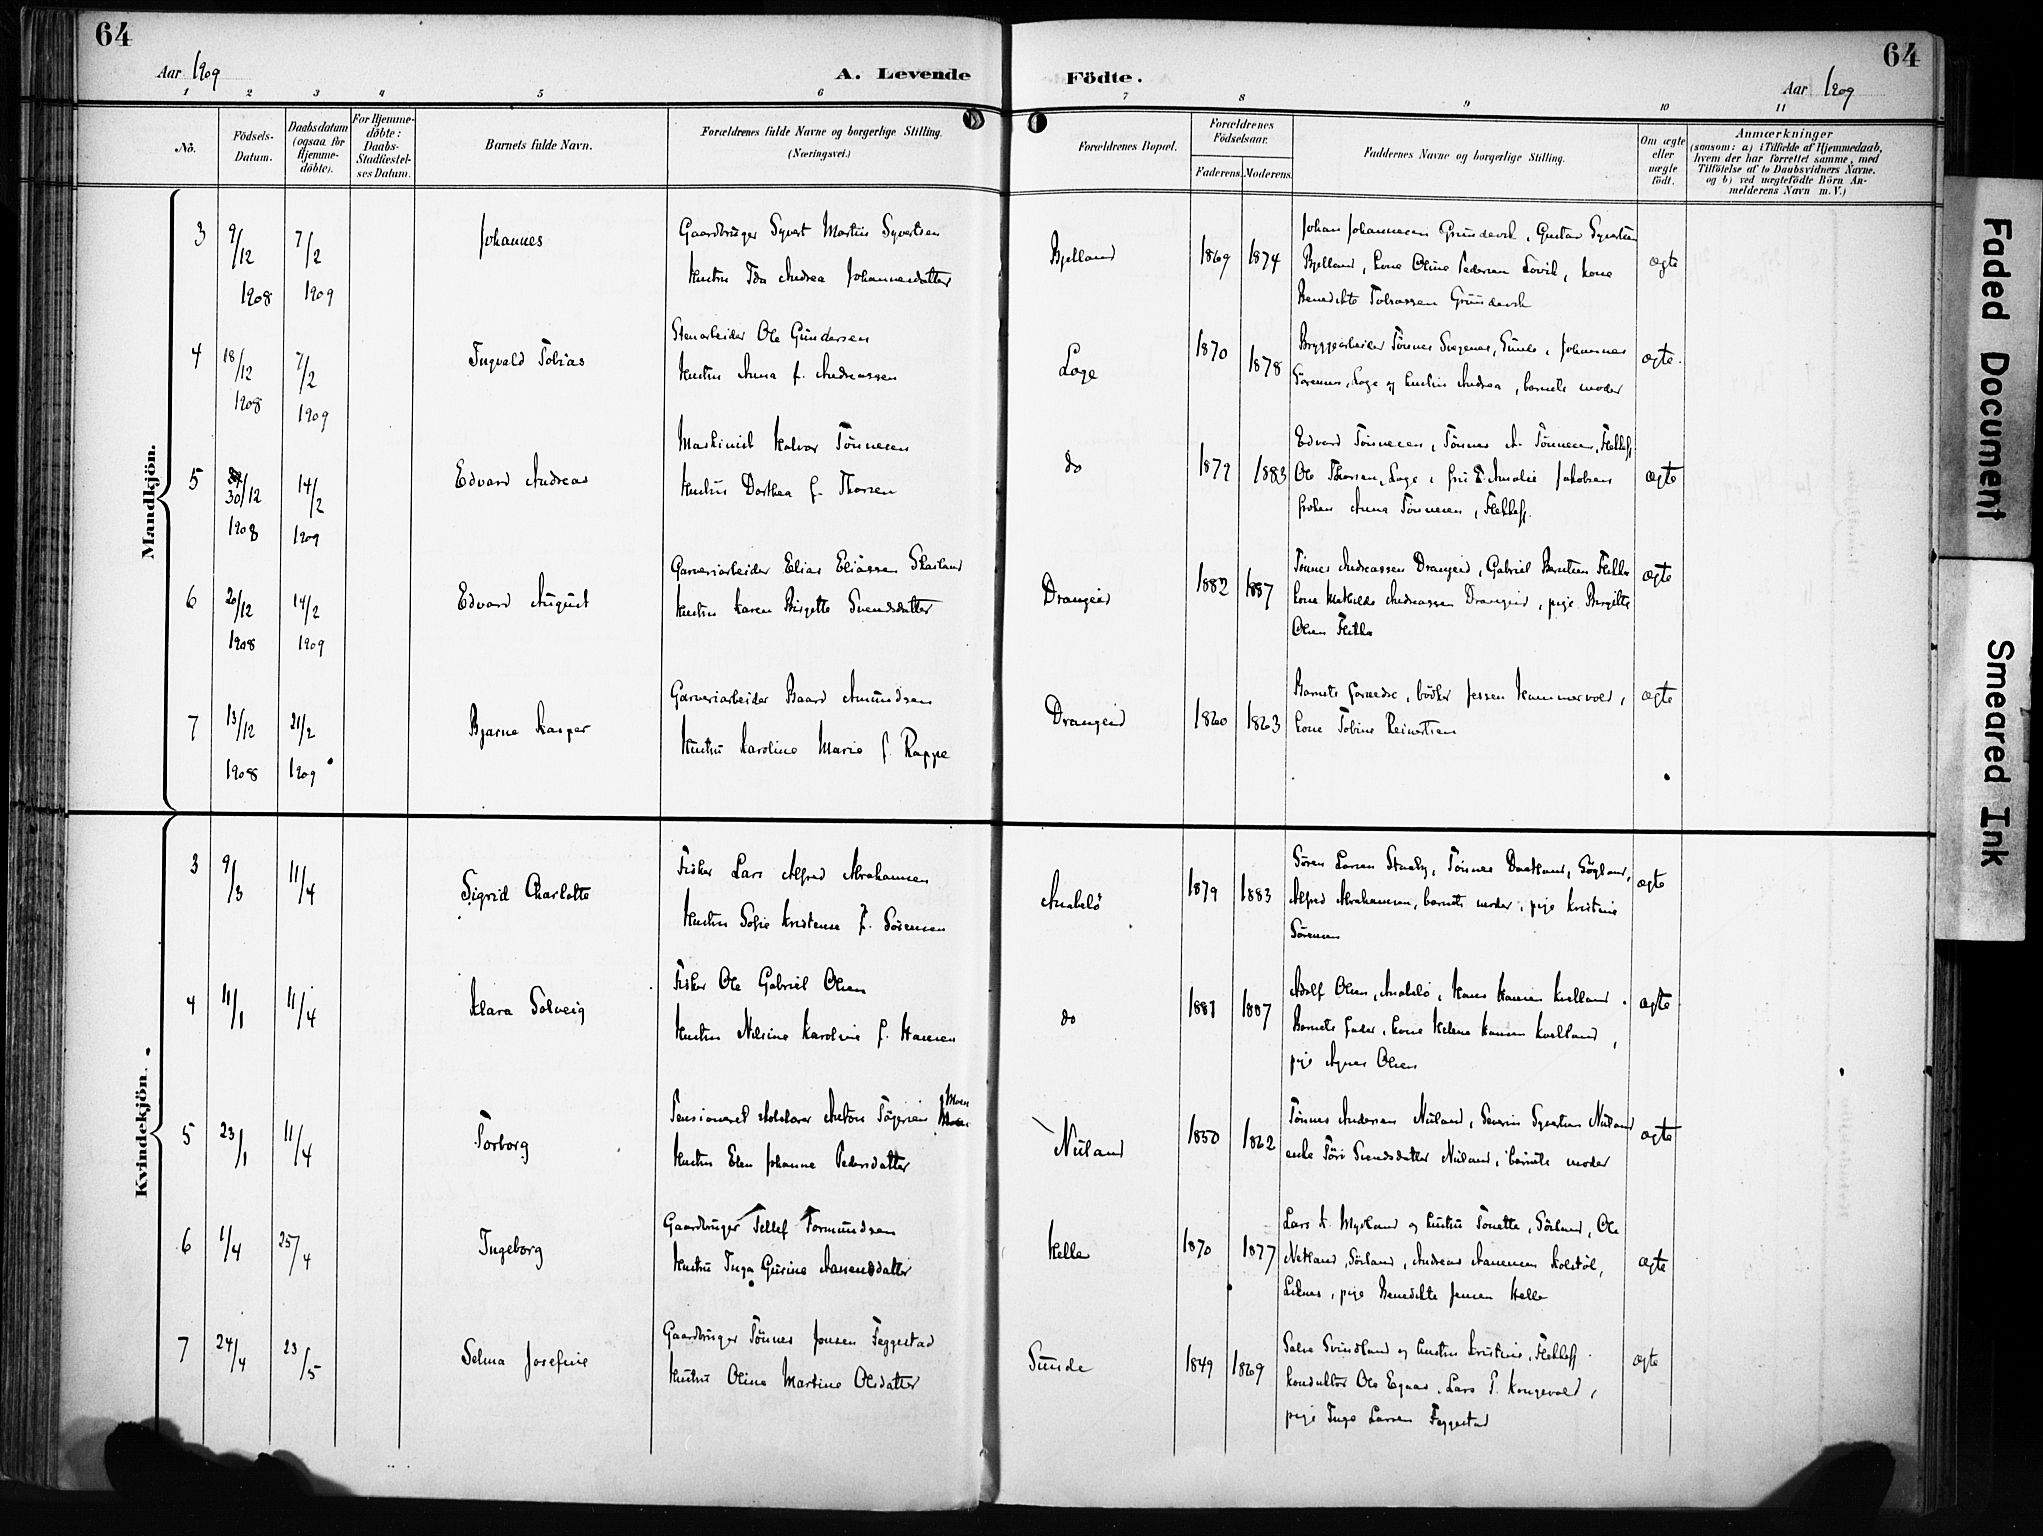 64
64
Aar 1909
A. Levende
Födte.
Aar 1909
1 2 3 4 5 6 7 8 9 10 11
No.
Födsels-Datum.
Daabsdatum (ogsaa for Hjemme-döbte).
For Hjemme-döbte: Daabs-Stadfæstel-ses Datum.
Barnets fulde Navn.
Forældrenes fulde Navne og borgerlige Stilling. (Næringsvei.)
Forældrenes Bopæl.
Forældrenes Födselsaar.
Faderens. Moderens.
Faddernes Navne og borgerlige Stilling.
Om ægte eller uægte födt.
Anmærkninger
(saasom: a) i Tilfælde af Hjemmedaab, hvem der har forrettet samme, med Tilföielse af to Daabsvidners Navne. og b) ved uægtefödte Börn Anmelderens Navn m. V.)
Mandkjön.
3 9/12 1908 7/2 1909 Johannes
Gaardbruger Syvert Martin Syvertsen
Hustru Ida Andrea Johannesdatter
Bjelland 1869 1874
Johan Johannesen Grundevik, Gustav Syvertsen
Bjelland, kone Oline Pedersen Lovik, kone
Benedikte Tobiassen Grundevik
ægte
4 18/12 1908 7/2 1909 Ingvald Tobias
Stenarbeider Ole Gundersen
Hustru Anna f. Andreassen
Loge 1870 1878
Bryggearbeider Tönnes Sunde, Johannes
Sörensen, Loge og hustru Andrea, barnets moder
ægte
5 30/12 1908 14/2 1909 Edvard Andreas
Maskinist Halvor Tönnesen
Hustru Dorthea f. Thorsen
do 1879 1883
Edvard Tönnesen, Tönnes A. Tönnesen, Flekkefj
Ole Thorsen, Loge, fru Amalie Jakobsen
fröken Anna Tönnesen, Flekkefj.
ægte
6 20/12 1908 14/2 1909 Edvard August
Garveriarbeider Elias Eliassen Skailand
Hustru Karen Birgitte Svendsdatter
Drangeid 1882 1887
Tönnes Andreassen Drangeid, Gabriel Berntsen Flikka
kone Mathilde Andreassen Drangeid, pige Birgitte
Olsen Flikka
ægte
7 13/12 1908 21/2 1909 Bjarne Kasper
Garveriarbeider Baard Amundsen
Hustru Karoline Marie f. Rappe
Drangeid 1860 1863
Barnets forældre, bödker Jessen Hammervold,
kone Tobine Reinertsen
ægte
Kvindekjön.
3 9/3 11/4 Sigrid Charlotte
Fisker Lars Alfred Abrahamsen
Hustru Sofie Kristense f. Sörensen
Anabelö 1879 1883
Sören Larsen Stueby, Tönnes Dautland, Söyland,
Alfred Abrahamsen, barnets moder, pige Kristine
Sörensen
ægte
4 11/1 11/4 Klara Solveig
Fisker Ole Gabriel Olsen
Hustru Nilsine Karoline f. Hansen
do 1881 1887
Adolf Olsen, Anabelö, Hans Hansen Kvelland.
Barnets fader, kone Helene Hansen Kvelland,
pige Agnes Olsen
ægte
5 23/1 11/4 Torborg
Pensioneret Anton Törjesen Moen
Hustru Elen Johanne Pedersdatter
Nuland 1850 1862
Tönnes Andersen Nuland, Severin Syvertsen Nuland
enke Töri Svendsdatter Nuland, barnets moder
ægte
6 1/4 25/4 Ingeborg
Gaardbruger Tellef Tormundsen
Hustru Inga Gurine Aanensdatter
Helle 1870 1877
Lars A. Mydland og hustru Tonette, Sörland, Ole
Netland, Sörland, Andreas Aanensen Kolstöl,
Liknes, pige Benedikte Jensen Helle
ægte
7 24/4 23/5 Selma Josefine
Gaardbruger Tönnes Jonsen Feggestad
Hustru Oline Martine Olsdatter
Sunde 1849 1869
Salve Svindland og hustru Kristine, Flekkefj.
konduktör Ole Egaas, Lars P. Kongevold,
pige Inga Larsen Feggestad
ægte
Faded Document
Smeared Ink